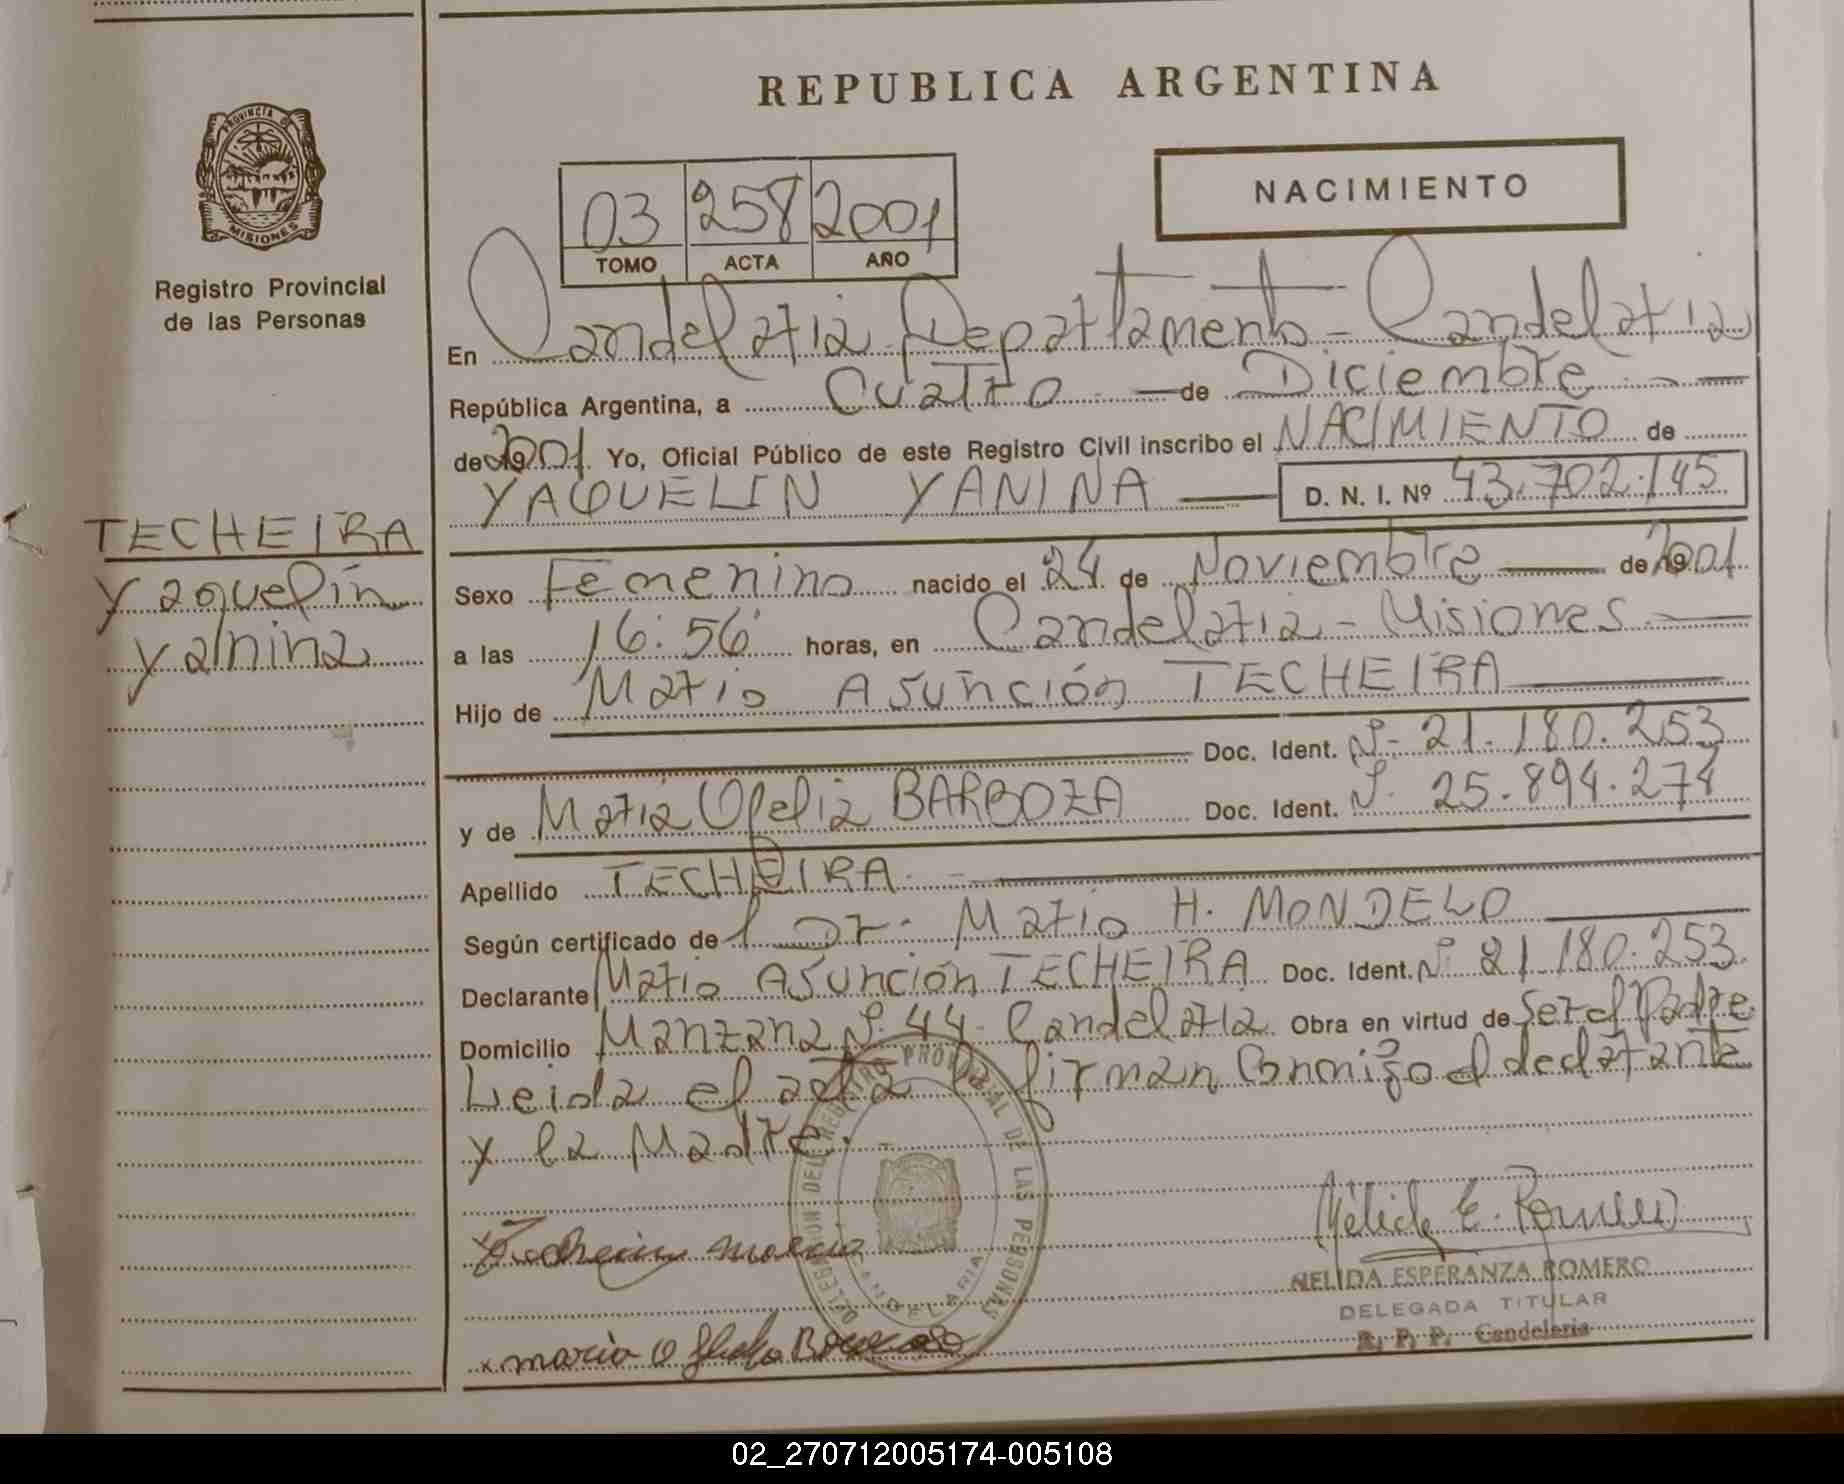 REPUBLICA ARGENTINA
PROVINCIA DE
MISIONES
Registro Provincial
de las Personas
03 258 2001
TOMO ACTA AÑO
NACIMIENTO
En Candelaria Departamento - Candelaria
República Argentina, a Cuatro de Diciembre
de 2001 Yo, Oficial Público de este Registro Civil inscribo el NACIMIENTO de
YAQUELIN YANINA D. N. I. Nº 43.702.145
TECHEIRA
Yaquelin
Yanina
Sexo Femenino nacido el 24 de Noviembre de 2001
a las 16:56 horas, en Candelaria - Misiones
Hijo de Mario Asunción TECHEIRA
Doc. Ident. Nº 21.180.253
y de Maria Ofelia BARBOZA Doc. Ident. Nº 25.894.274
Apellido TECHEIRA
Según certificado de l Dr. Mario H. MONDELO
Declarante Mario Asunción TECHEIRA Doc. Ident. Nº 21.180.253
Domicilio Manzana Nº 44 - Candelaria Obra en virtud de Ser el Padre
Leida el acta la firman Conmigo el declarante
y la Madre.
DELEGACION DEL REGISTRO PROVINCIAL DE LAS PERSONAS
CANDELARIA
Techeira Mario
Nélida E. Romero
NELIDA ESPERANZA ROMERO
DELEGADA TITULAR
R. P. P. Candelaria
x maria Ofelia
02_270712005174-005108